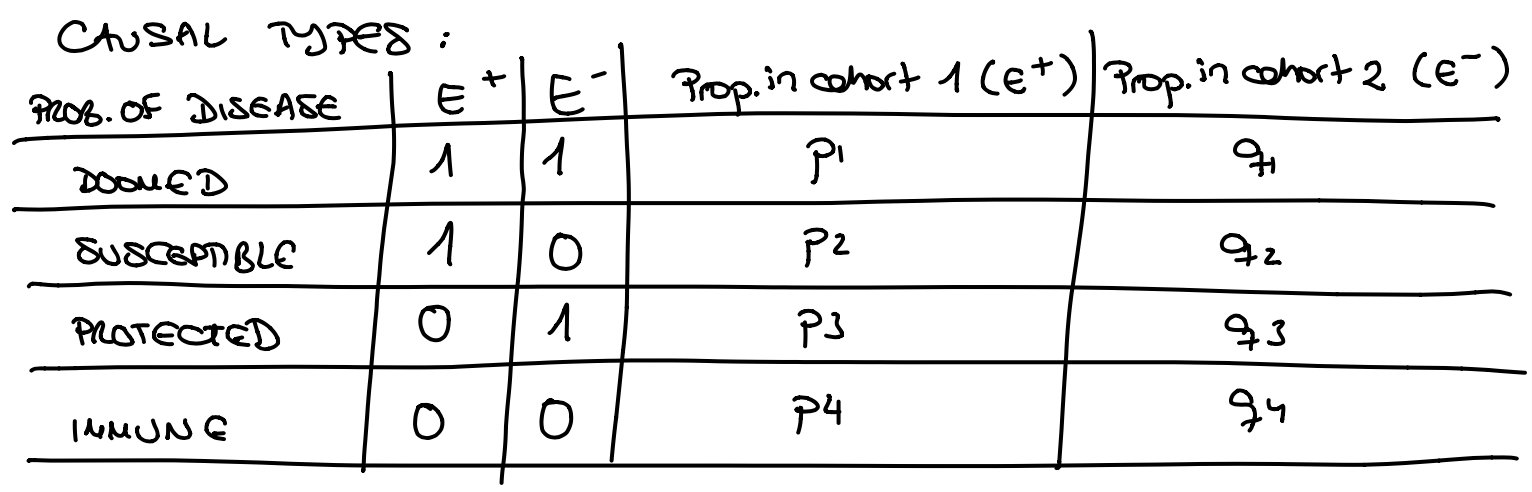 CAUSAL TYPES :
PROB. OF DISEASE E+ E- Prop. in cohort 1 (E+) Prop. in cohort 2 (E-)
DOOMED 1 1 P1 q1
SUSCEPTIBLE 1 0 P2 q2
PROTECTED 0 1 P3 q3
IMMUNE 0 0 P4 q4